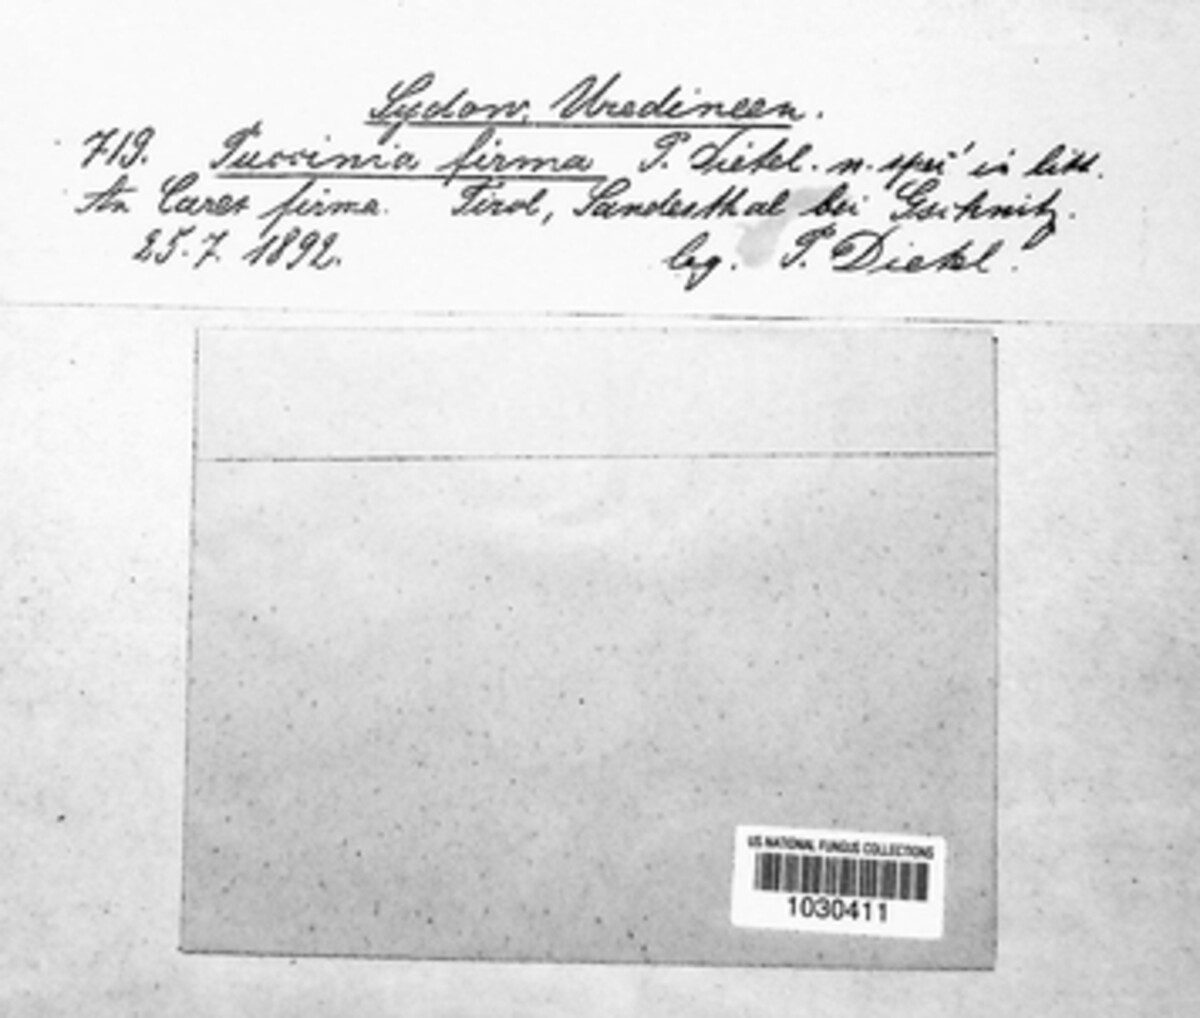 Sydow, Uredineen.
719. Puccinia firma P. Dietel. n. spec. in litt.
An Carex firma. Tirol, Sandesthal bei Gschnitz.
25.7.1892. leg. P. Dietel.
US NATIONAL FUNGUS COLLECTIONS
1030411